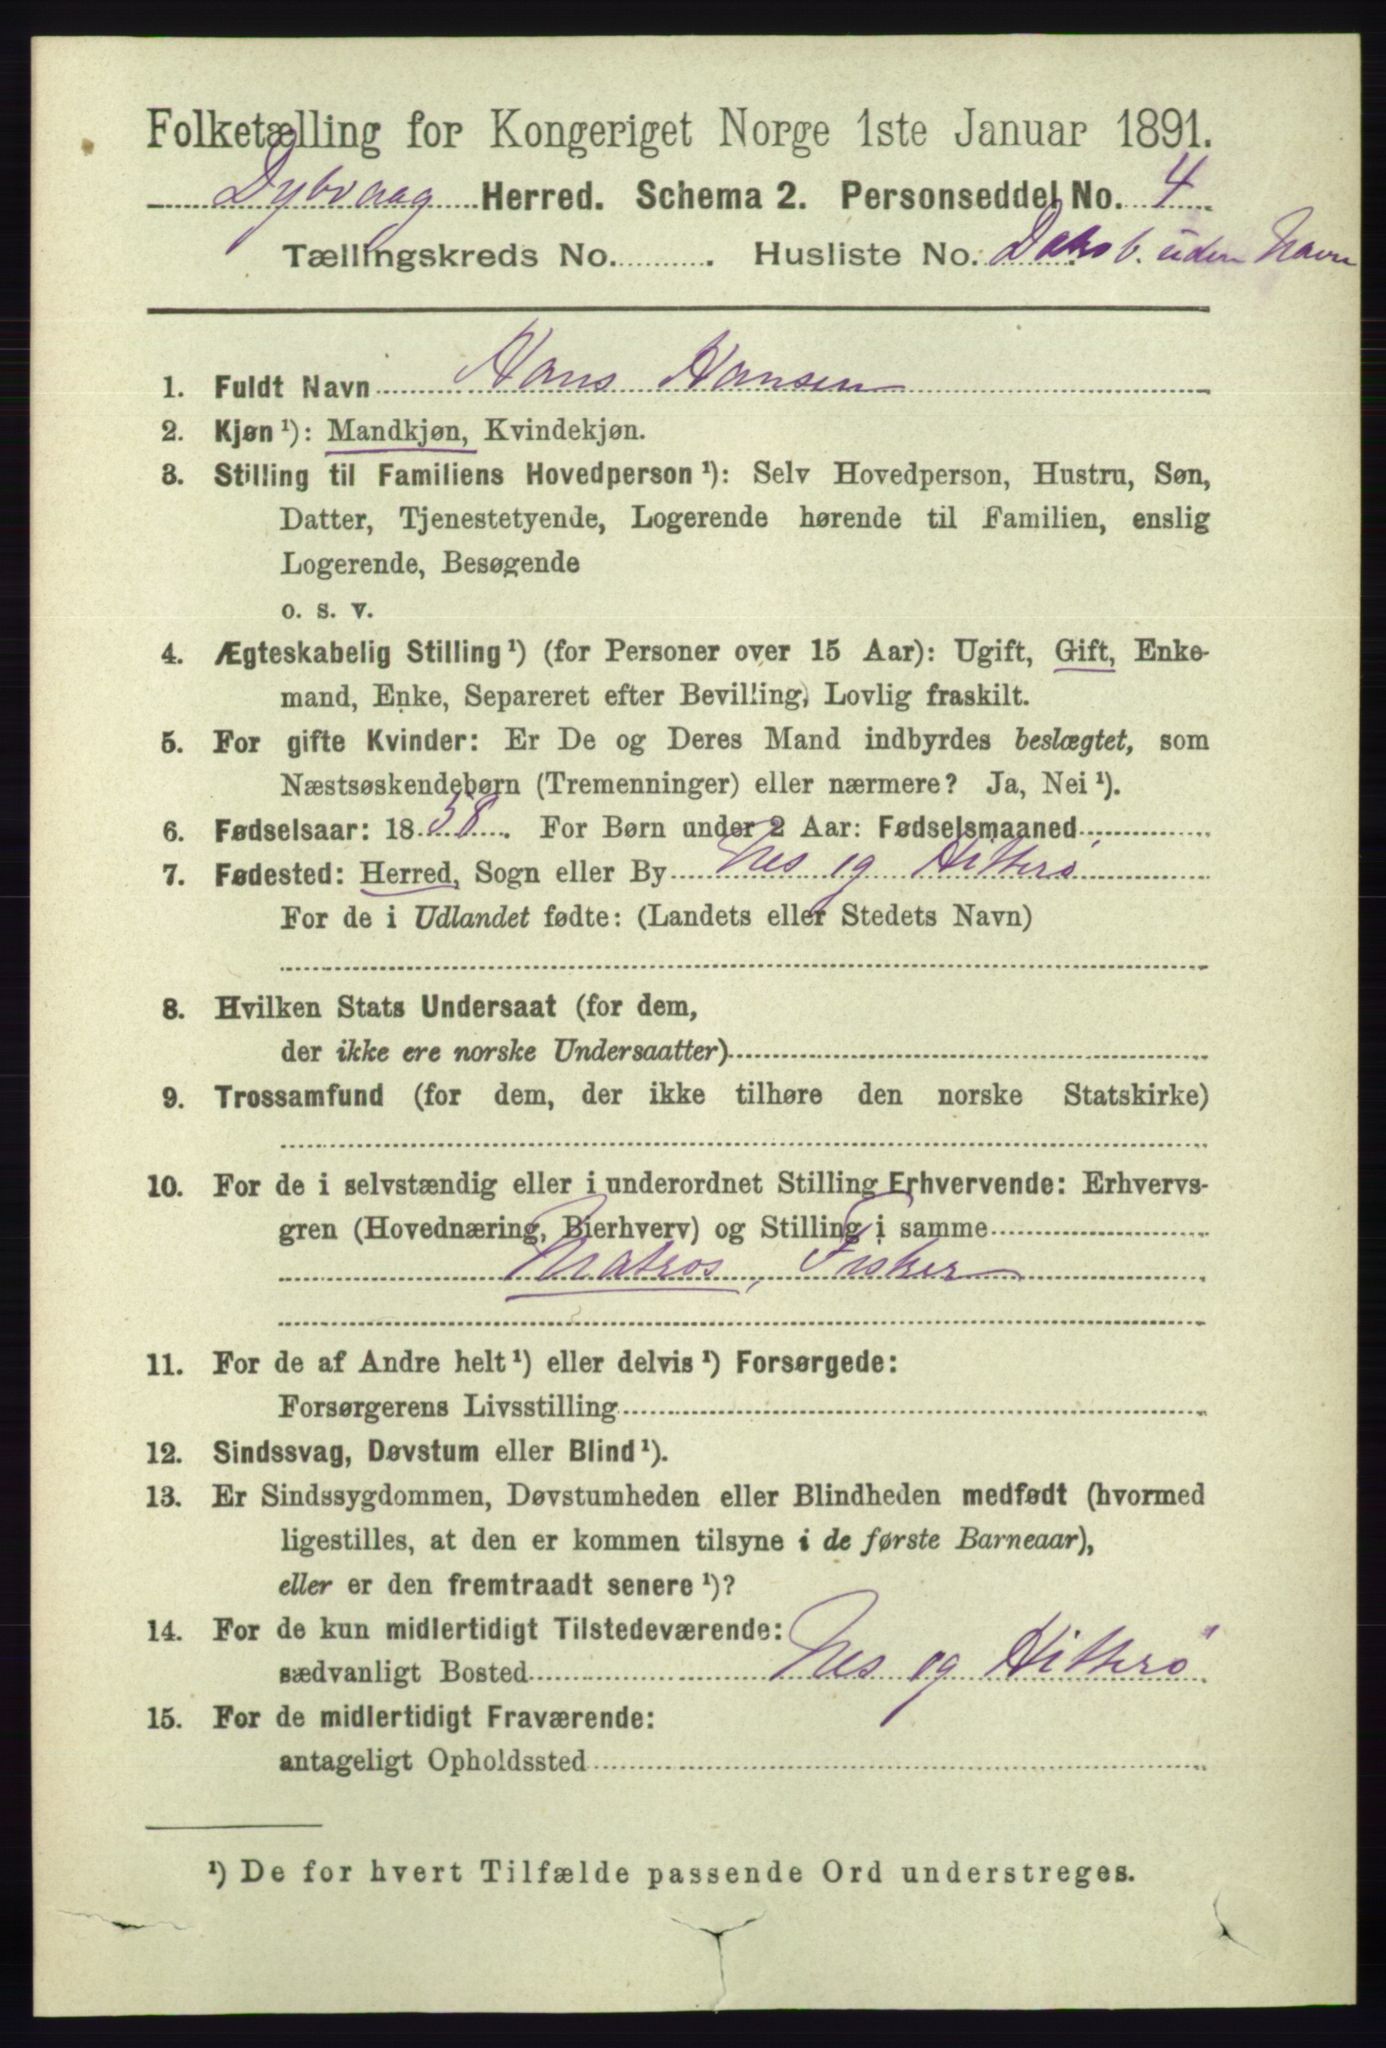 Folketælling for Kongeriget Norge 1ste Januar 1891.
Dybvaag Herred. Schema 2. Personseddel No. 4
Tællingskreds No. . Husliste No. b. uden Navn
1. Fuldt Navn Hans Hansen
2. Kjøn ¹): Mandkjøn, Kvindekjøn.
3. Stilling til Familiens Hovedperson ¹): Selv Hovedperson, Hustru, Søn,
Datter, Tjenestetyende, Logerende hørende til Familien, enslig
Logerende, Besøgende
o. s. v.
4. Ægteskabelig Stilling ¹) (for Personer over 15 Aar): Ugift, Gift, Enke-
mand, Enke, Separeret efter Bevilling, Lovlig fraskilt.
5. For gifte Kvinder: Er De og Deres Mand indbyrdes beslægtet, som
Næstsøskendebørn (Tremenninger) eller nærmere? Ja, Nei ¹).
6. Fødselsaar: 1858. For Børn under 2 Aar: Fødselsmaaned
7. Fødested: Herred, Sogn eller By Nes og Hitterø
For de i Udlandet fødte: (Landets eller Stedets Navn)
8. Hvilken Stats Undersaat (for dem,
der ikke ere norske Undersaatter)
9. Trossamfund (for dem, der ikke tilhøre den norske Statskirke)
10. For de i selvstændig eller i underordnet Stilling Erhvervende: Erhvervs-
gren (Hovednæring, Bierhverv) og Stilling i samme
Matros, Fisker
11. For de af Andre helt ¹) eller delvis ¹) Forsørgede:
Forsørgerens Livsstilling
12. Sindssvag, Døvstum eller Blind ¹).
13. Er Sindssygdommen, Døvstumheden eller Blindheden medfødt (hvormed
ligestilles, at den er kommen tilsyne i de første Barneaar),
eller er den fremtraadt senere ¹)?
14. For de kun midlertidigt Tilstedeværende:
sædvanligt Bosted Nes og Hitterø
15. For de midlertidigt Fraværende:
antageligt Opholdssted
¹) De for hvert Tilfælde passende Ord understreges.